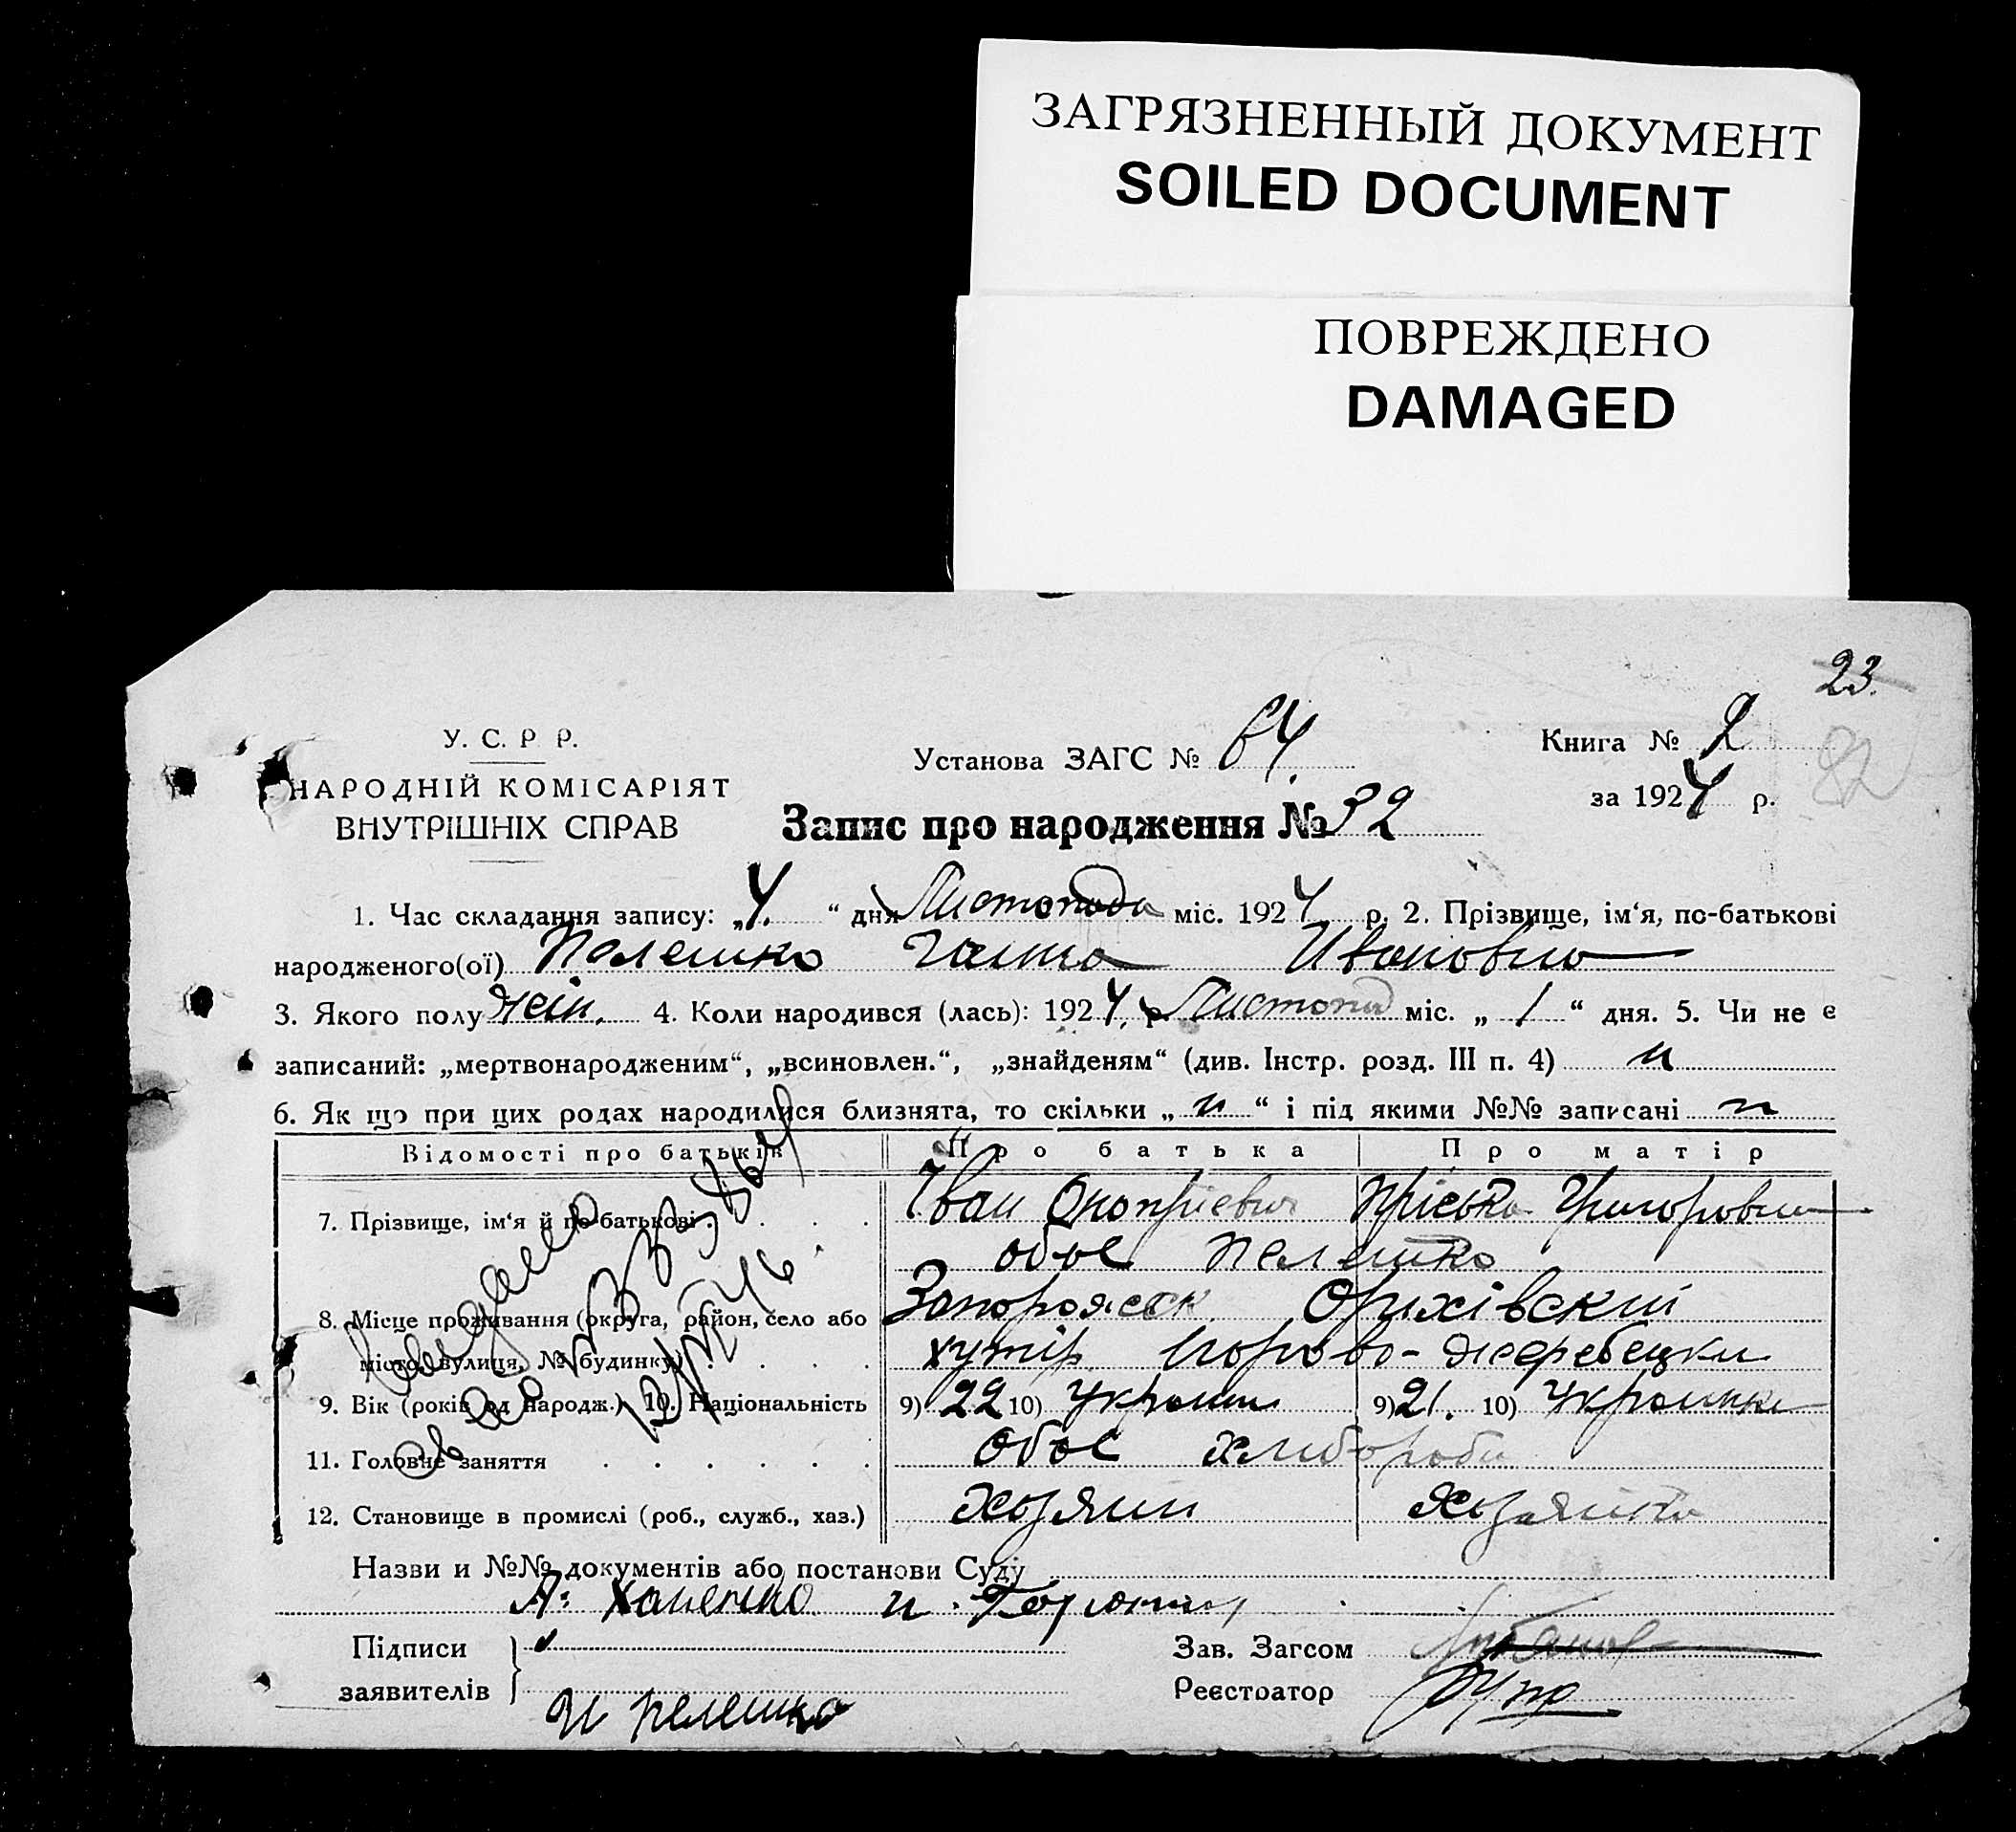 ЗАГРЯЗНЕННЫЙ ДОКУМЕНТ
SOILED DOCUMENT
ПОВРЕЖДЕНО
DAMAGED
23.
82
У. С. Р Р.
НАРОДНІЙ КОМІСАРІЯТ
ВНУТРІШНІХ СПРАВ
Установа ЗАГС № 64.
Книга № 2
за 1924 р.
Запис про народження № 32
1. Час складання запису: „4.“ дня Листопада міс. 1924 р. 2. Прізвище, ім'я, по-батькові
народженого(ої) Пелешко Ганна Ивановна
3. Якого полу жін. 4. Коли народився (лась): 1924 р. Листопад міс. „ 1 “ дня. 5. Чи не є
записаний: „мертвонародженим“, „всиновлен.“, „знайденям“ (див. Інстр. розд. III п. 4) н
6. Як що при цих родах народилися близнята, то скільки „ н “ і під якими №№ записані н
Відомості про батьків Про батька Про матір
7. Прізвище, ім'я й по-батькові Іван Оноприевич Пріська Григоровна
обое Пелешко
8. Місце проживання (округа, район, село або Запорожск Оріхівский
місто, вулиця, № будинку) хутір -Жеребецки
9. Вік (років од народж.) 10. Національність 9) 22 10) Украинец 9) 21. 10) Украинка
11. Головне заняття Обое хлибороби
12. Становище в промислі (роб., служб., хаз.) Хозяин Хозяйка
Назви и №№ документів або постанови Суду
А. Ханенко и.
Підписи
заявителів
И Пелешко
Зав. Загсом
Реєстратор